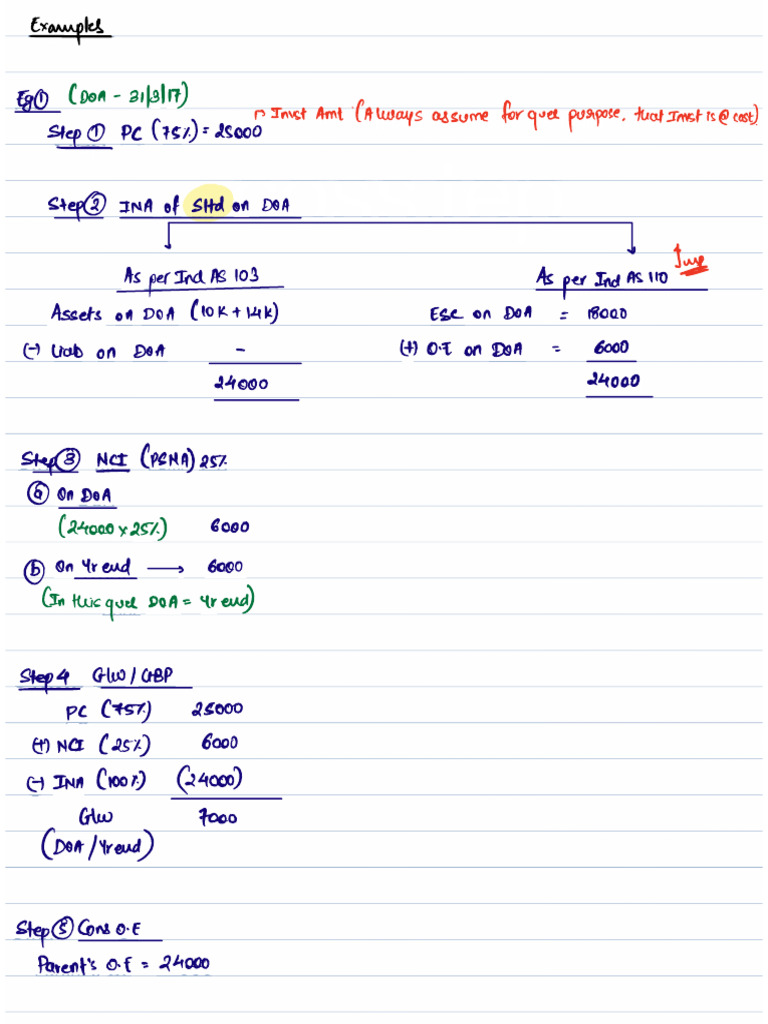 Examples
Eg① (DOA - 31/3/17)
↱ Invst Amt (Always assume for ques purpose, that Invst is @ cost)
Step ① PC (75%) = 25000
Step ② INA of SHd on DOA
As per Ind AS 103
As per Ind AS 110 Imp
Assets on DOA (10K + 14K)
ESC on DOA = 18000
(-) Liab on DOA -
(+) O.E on DOA = 6000
24000
24000
Step ③ NCI (PSNA) 25%
ⓐ On DOA
(24000 x 25%) 6000
ⓑ On Yr end → 6000
(In this ques DOA = Yr end)
Step 4 G/w / GBP
PC (75%) 25000
(+) NCI (25%) 6000
(-) INA (100%) (24000)
G/w 7000
(DOA / Yr end)
Step ⑤ Cons O.E
Parent's O.E = 24000